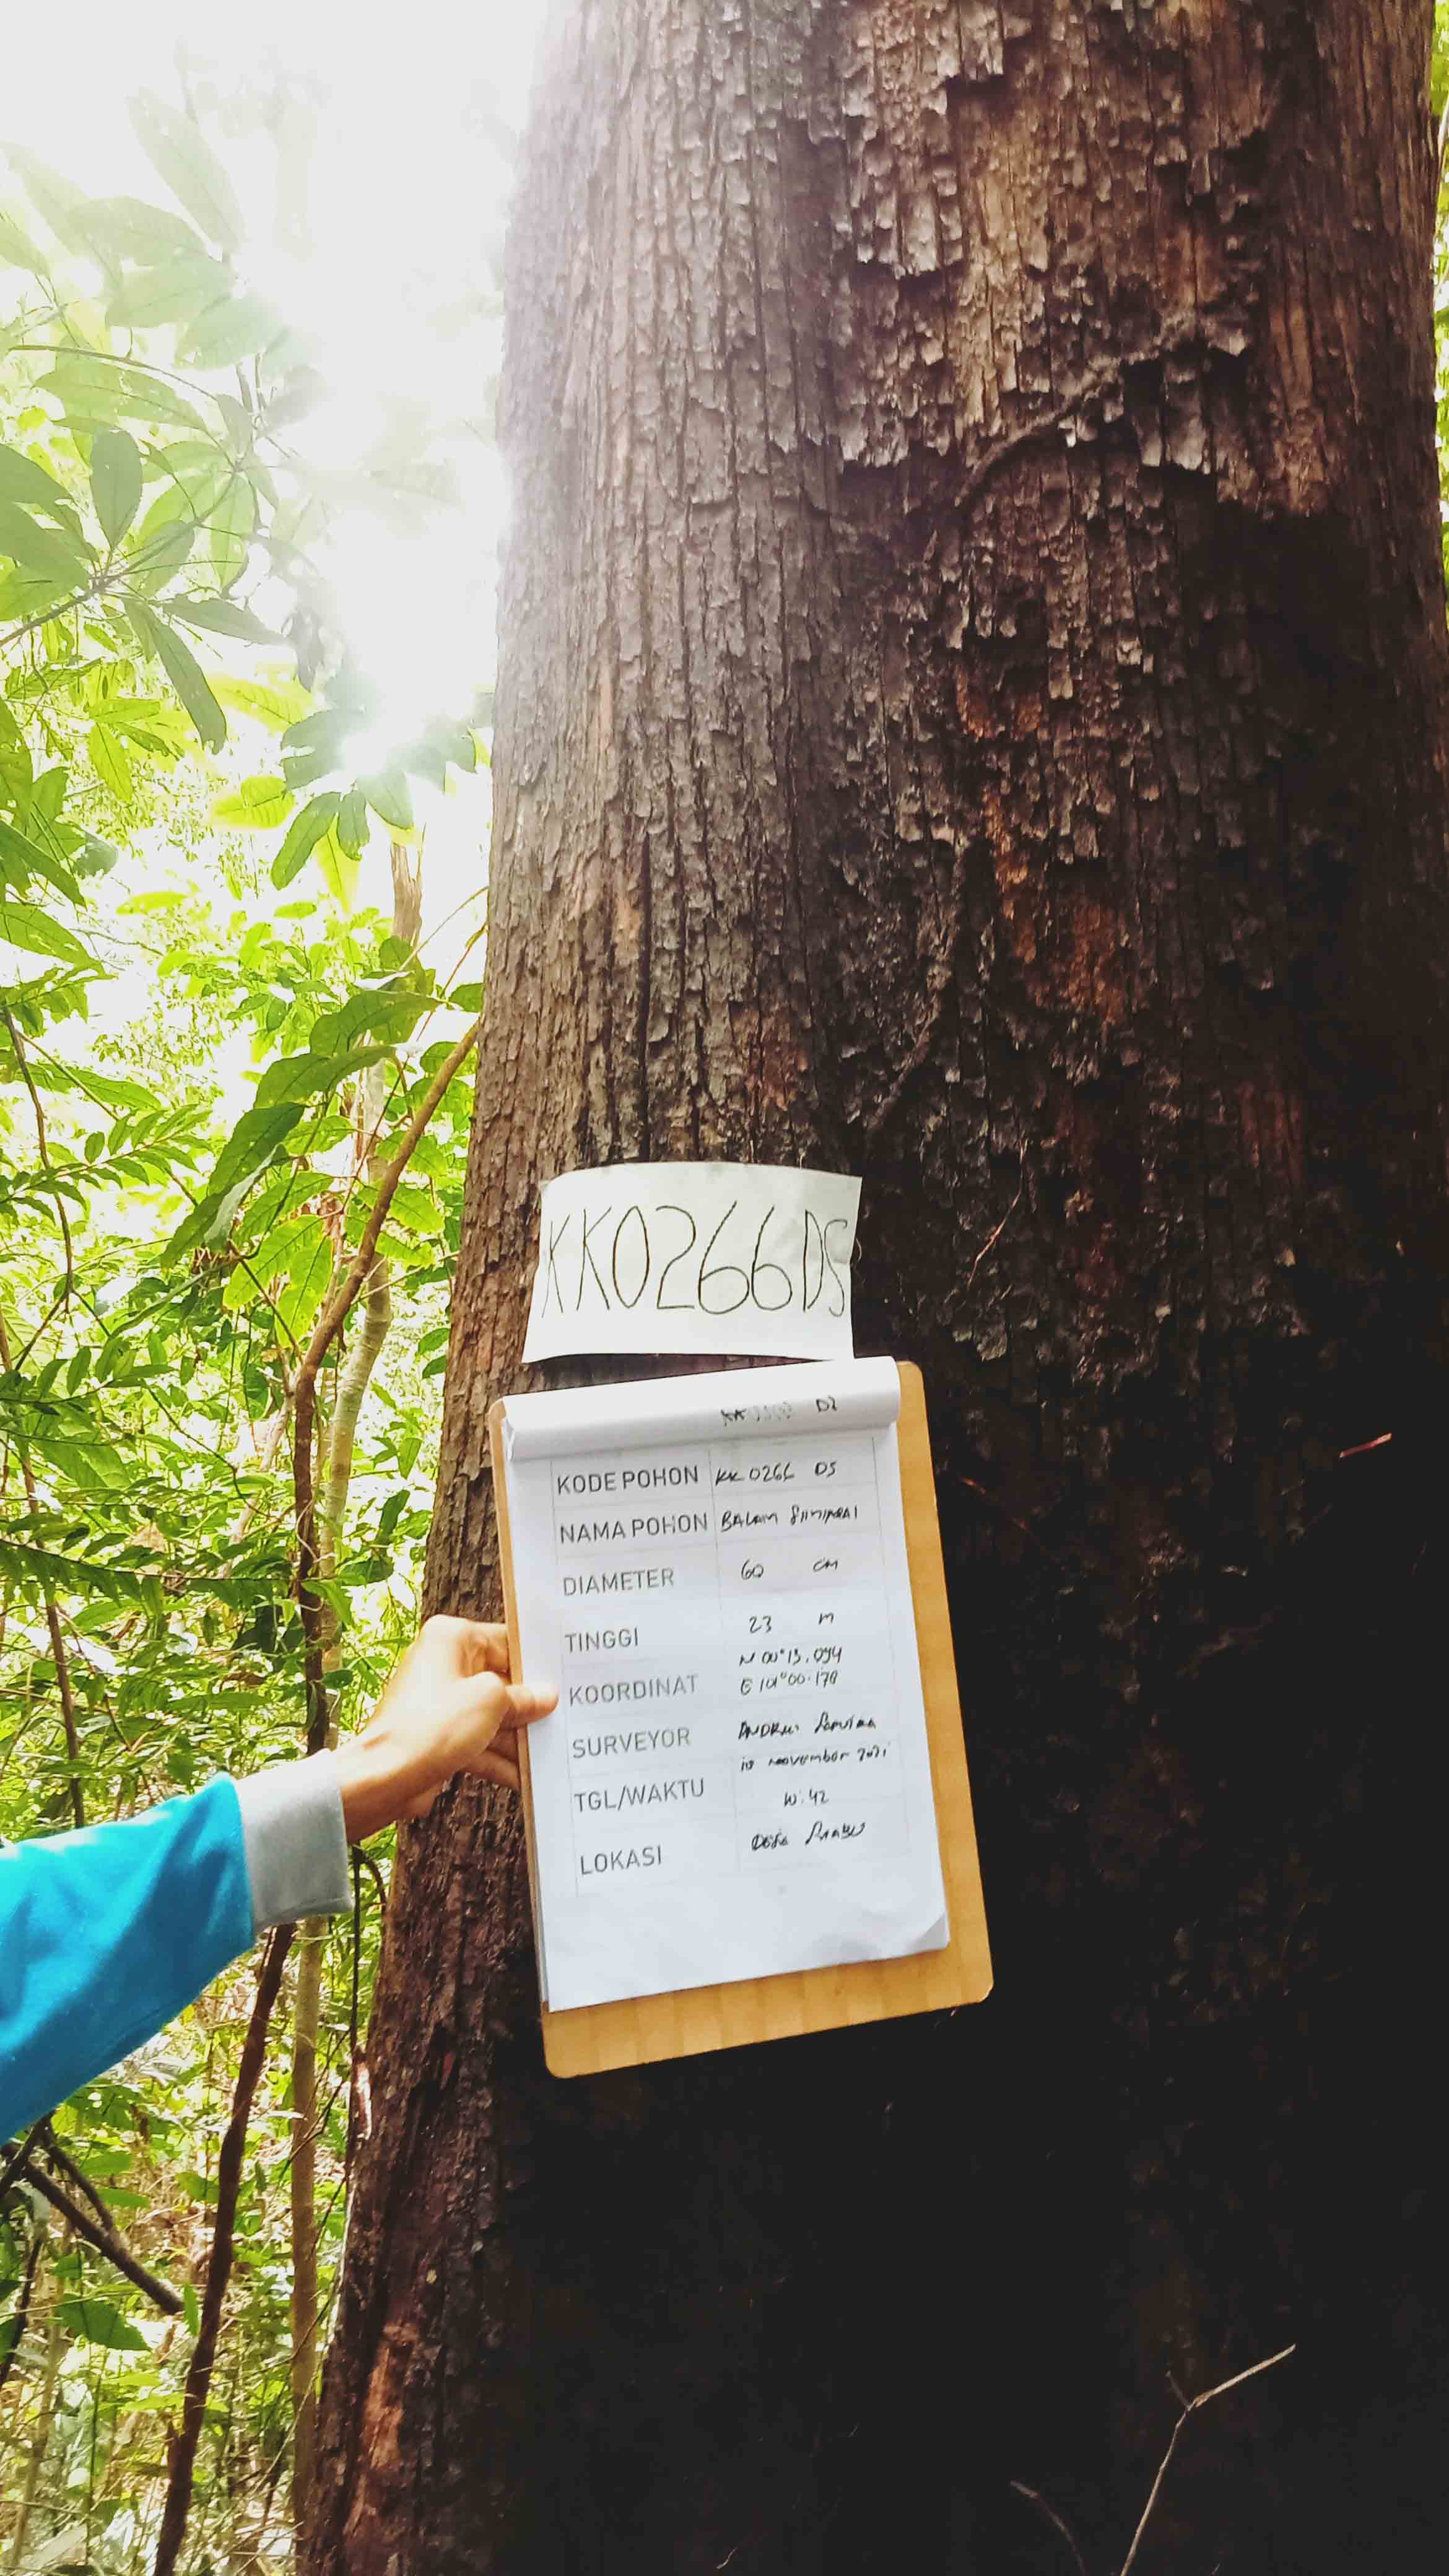 KK0266DS
D2
KODE POHON KK 0266 DS
NAMA POHON BALAM
DIAMETER 60 cm
TINGGI 23 m
KOORDINAT N 00°13.094
E 101°00.178
SURVEYOR ANDRI
TGL/WAKTU 10 november 2021
10:42
LOKASI Desa